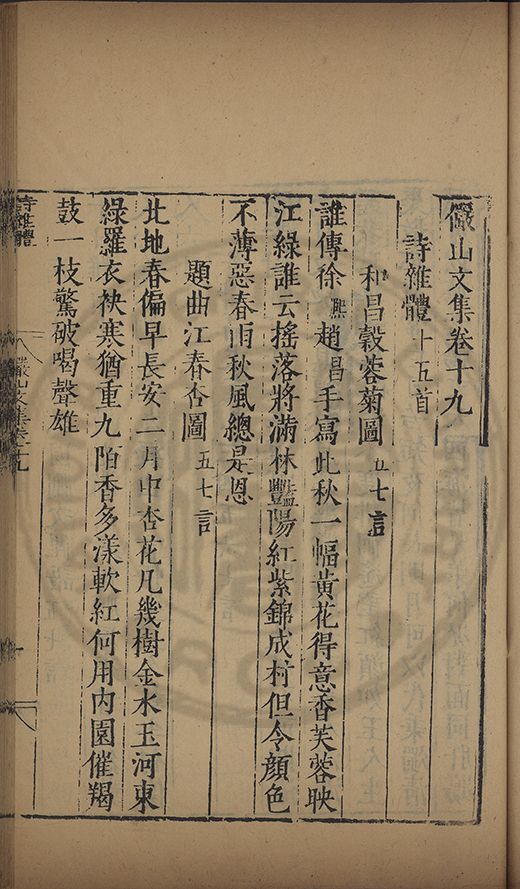 儼山文集卷十九
詩雜體十五首
和昌穀蓉菊圖五七言
誰傳徐熙趙昌手寫此秋一幅黃花得意香芙蓉映
江綠誰云搖落將滿林豔陽紅紫錦成村但令顏色
不薄惡春雨秋風總是恩
題曲江春杏圖五七言
北地春偏早長安二月中杏花凡幾樹金水玉河東
綠羅衣袂寒猶重九陌香多漾軟紅何用內園催羯
鼓一枝驚破喝聲雄
詩雜體
儼山文集卷十九